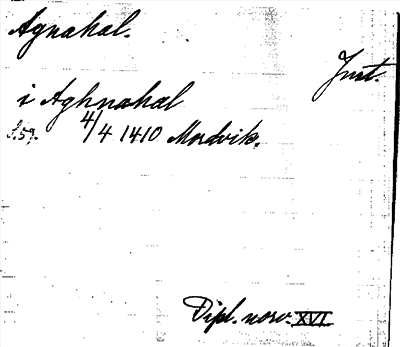 Agnahal.
Jmt.
i Aghnahal
S. 57. 4/4 1410 Mordvik.
Dipl. norv. XVI